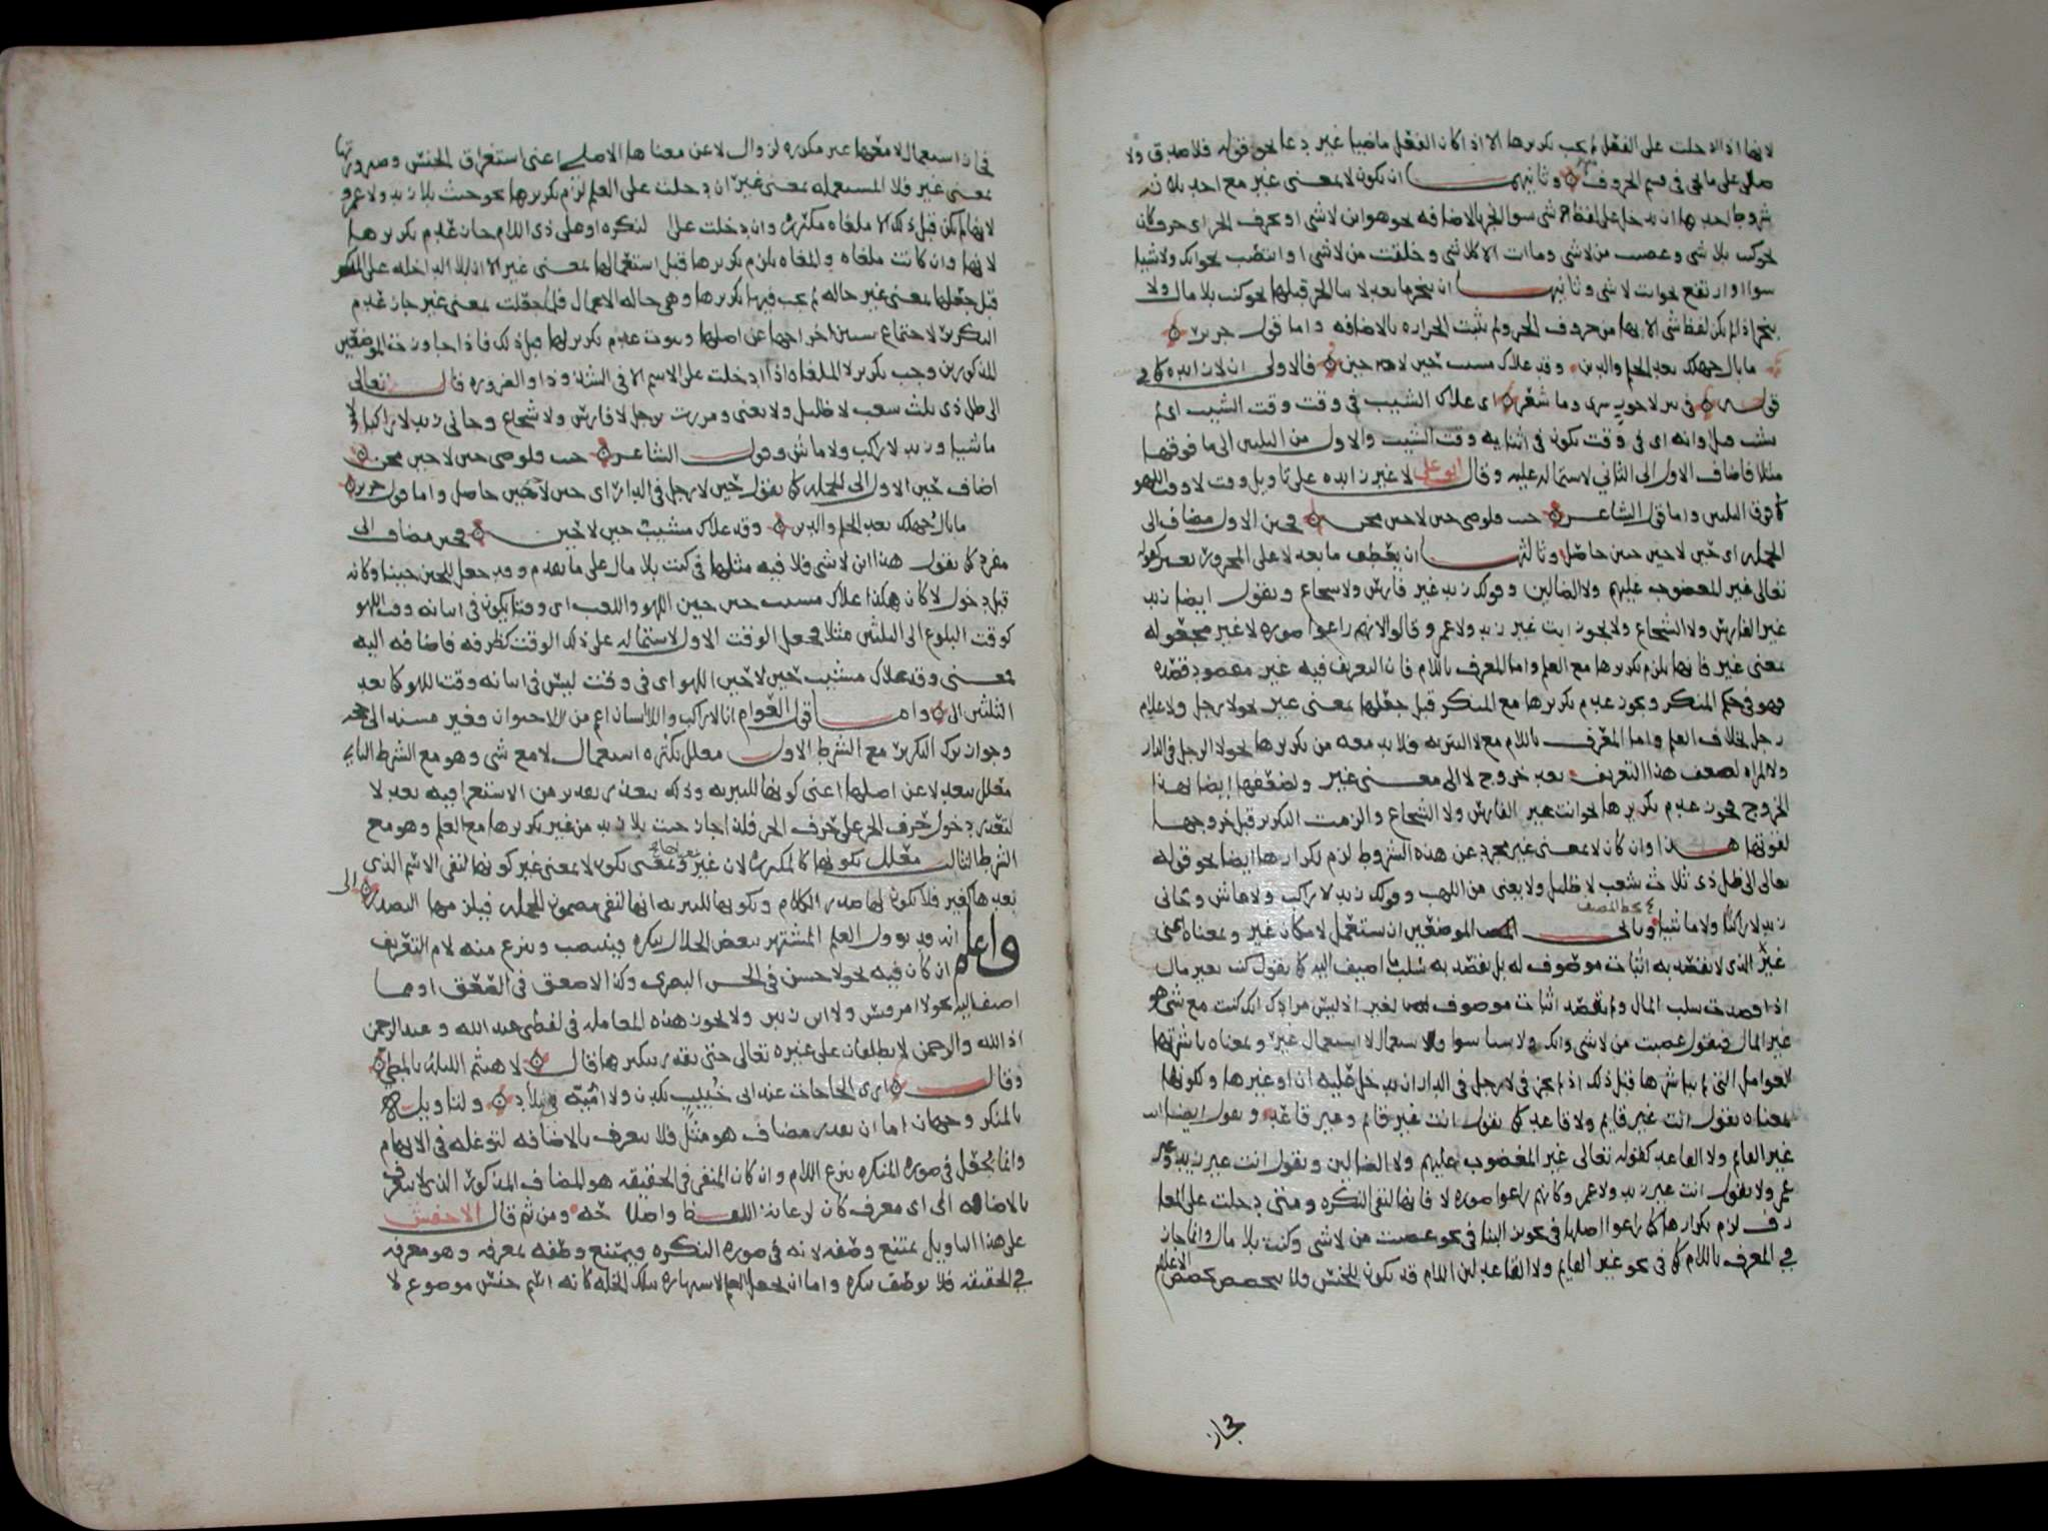 لانها اذا دخلت على الفعل لم يجب تكريرها الا اذا كان الفعل ماضيا غير دعا نحو قوله فلا صدق ولا
صلى على ما يجي في قسم الحروف وثانيهما ان يكون لا بمعنى غير مع احد ثلاثة
شروط احدها ان يدخل على لفظ شي سوا انجر بالاضافه نحو هو ابن لا شي او بحرف الجر اي حرف كان
نحو كنت بلا شي وغضبت من لا شي وما انت الا كلا شي وخلقت من لا شي او انتصب نحو انك ولا شيا
سوا او ارتفع نحو انت لا شي وثانيها ان ينجر ما بعد لا بباء الجر قبلها نحو كنت بلا مال ولا
ينجر اذا لم يكن لفظ شي الا بها من حروف الجر ولم يثبت انجراره بالاضافه واما قول جرير
ما بال جهلك بعد الحلم والدين وقد علاك مشيب حين لا حين فالاولى ان لا زايده كما في
قوله في بير لا حور سرى وما شعر اي علاك الشيب في وقت وقت الشيب اي لم
مثلا فاضاف الاول الى الثاني لاشتماله عليه وقال ابو علي لا غير زايده على تاويل وقت لا وقت اللهو
الشاعر حنت قلوصي حين لا حين محن فحين الاول مضاف الى
الجمله اي حين لا حين حنين حاصل وثالثها ان يعطف ما بعد لا على المجرور بغير كقوله
تعالى غير المغضوب عليهم ولا الضالين وقولك زيد غير فارس ولا شجاع وتقول ايضا زيد
غير الفارس ولا الشجاع ولا يجوز انت غير زيد ولا عمرو قالوا لانهم راعوا صوره لا غير مجعوله
بمعنى غير فانها يلزم تكريرها مع العلم واما المعرف باللام فان التعريف فيه غير مقصود قصده
فهو في حكم المنكر ويجوز عدم تكريرها مع المنكر قبل جعلها بمعنى غير نحو لا رجل ولا غلام
رجل بخلاف العلم واما المعرف باللام مع لا التبريه فلا بد معه من تكريرها نحو لا الرجل في الدار
ولا المراه لضعف هذا التعريف بعد خروج لا الى معنى غير ولضعفها ايضا بهذا
الخروج يجوز عدم تكريرها نحو انت غير الفارس ولا الشجاع والزمت التكرير قبل خروجها
لقوتها هذا وان كان لا بمعنى غير مجرد عن هذه الشروط لزم تكرارها ايضا نحو قوله
تعالى الى ظل ذي ثلاث شعب لا ظليل ولا يغني من اللهب وقولك زيد لا راكب ولا ماش وجاني
زيد لا راكبا ولا ماشيا وثاني الموضعين ان تستعمل لا مكان غير وبمعناه اعني
غير الذي لا يقصد به اثبات موصوف له بل يقصد به سلب ما اضيف اليه كما تقول كنت بغير مال
اذا قصدت سلب المال ولم تقصد اثبات موصوف لغير اذ ليس مرادك انك كنت مع شي هو
غير المال فتقول غضبت من لا شي وانك ولا شيا سوا
بمعناه تقول انت غير قايم ولا قاعد كما تقول انت غير قايم وغير قاعد وتقول ايضا انت
غير القايم ولا القاعد كقوله تعالى غير المغضوب عليهم ولا الضالين وتقول انت غير زيد وغير
عمرو ولا تقول انت غير زيد ولا عمرو كانهم راعوا صوره لا فانها لنفي النكره ومتى دخلت على المعا
رف لزم تكرارها كما راعوا اصلها في نحو غضبت من لا شي وكنت بلا مال وانما جاز
في المعرف باللام كما في نحو غير القايم ولا القاعد لان اللام قد يكون للجنس ولا يتخصص تخصص الاعلام
مجاز
في ان استعمال لا معها غير مكرره لزوال لا عن معناها الاصلي اعني استغراق الجنس وصيرورتها
بمعنى غير فلا المستعمله بمعنى غير ان دخلت على العلم لزم تكريرها نحو جئت بلا زيد ولا عمرو
لانها لم تكن قبل ذلك الا ملغاه مكرره وان دخلت على النكره او على ذي اللام جاز عدم تكريرها
لانها وان كانت ملغاه والملغاه يلزم تكريرها قبل استعمالها بمعنى غير الا ان لا الداخله على المنكر
قبل جعلها بمعنى غير حاله لم يجب فيها تكريرها وهي حاله الاعمال فلما جعلت بمعنى غير جاز عدم
التكرير لاجتماع سببين اخراجها عن اصلها وثبوت عدم تكريرها قبل ذلك فاذا جاوزت الموضعين
المذكورين وجب تكرير لا الملغاه اذا دخلت على الاسم الا في الشذوذ او الضروره قال تعالى
الى ظل ذي ثلث شعب لا ظليل ولا يغني ومررت برجل لا فارس ولا شجاع وجاني زيد لا راكبا ولا
ماشيا وزيد لا راكب ولا ماش وقول الشاعر حنت قلوصي حين لا حين محن
اضاف حين الاول الى الجمله كما تقول حين لا رجل في الدار اي حين لا حين حاصل واما قول جرير
ما بال جهلك بعد الحلم والدين وقد علاك مشيب حين لا حين فحين مضاف الى
مفرد كما تقول هذا ابن لا شي فلا فيه مثلها في كنت بلا مال على ما تقدم وقد جعل للحين حينا وكانه
قبل دخول لا كان هكذا علاك مشيب حين حين اللهو واللعب اي وقتا يكون في اثنائه وقت اللهو
كوقت البلوغ الى الثلثين مثلا فجعل الوقت الاول لاشتماله على ذلك الوقت كظرفه فاضافه اليه
فمعنى وقد علاك مشيب حين لا حين اللهو اي في وقت ليس في اثنائه وقت اللهو كما بعد
الثلثين الى واما قول العوام انا لا راكب واللا انسان اعم من اللا حيوان وغير مسند الى حجه
وجواز ترك التكرير مع الشرط الاول معلل بكثره استعمال لا مع شي وهو مع الشرط الثاني
معلل ببعد لا عن اصلها اعني كونها للتبريه وذلك بتعذر تقدير من الاستغراقيه بعد لا
لتعذر دخول حرف الجر على حرف الجر فلذا جاز جئت بلا زيد من غير تكريرها مع العلم وهو مع
الشرط الثالث معلل بكونها كالمكرره لان غير بمعنى لا يكون لا بمعنى غير كونها لنفي الاسم الذي
بعدها كغير فلا يكون لها صدر الكلام وبكونها للتبريه انها لنفي مضمون الجمله فيلزمها التصدر
واعلم انه قد يوول العلم المشتهر ببعض الخلال بنكره فينتصب وينزع منه لام التعريف
ان كان فيه نحو لا حسن في الحسن البصري وكذا لا صعق في الصعق او مما
اضيف اليه نحو لا امرو قيس ولا ابن زبير ولا يجوز هذه المعامله في لفظي عبد الله وعبد الرحمن
اذ الله والرحمن لا يطلقان على غيره تعالى حتى يقدر تنكيرهما قال لا هيثم الليله بالمطي
وقال ارى الحاجات عند ابي خبيب نكدن ولا اميه في البلاد ولتاويله
بالمنكر وجهان اما ان يقدر مضاف هو مثل فلا يتعرف بالاضافه لتوغله في الابهام
وانما يجعل في صوره المنكره بنزع اللام وان كان المنفي في الحقيقه هو المضاف المذكور الذي لا يتعرف
بالاضافه الى اي معرف كان لرعايه اللفظ واصلاحه ومن ثم قال الاخفش
على هذا التاويل يمتنع وصفه لانه في صوره النكره فيمتنع وصفه بمعرفه وهو معرفه
في الحقيقه فلا يوصف بنكره واما ان يجعل العلم لاشتهاره بتلك الخله كانه اسم جنس موضوع لا